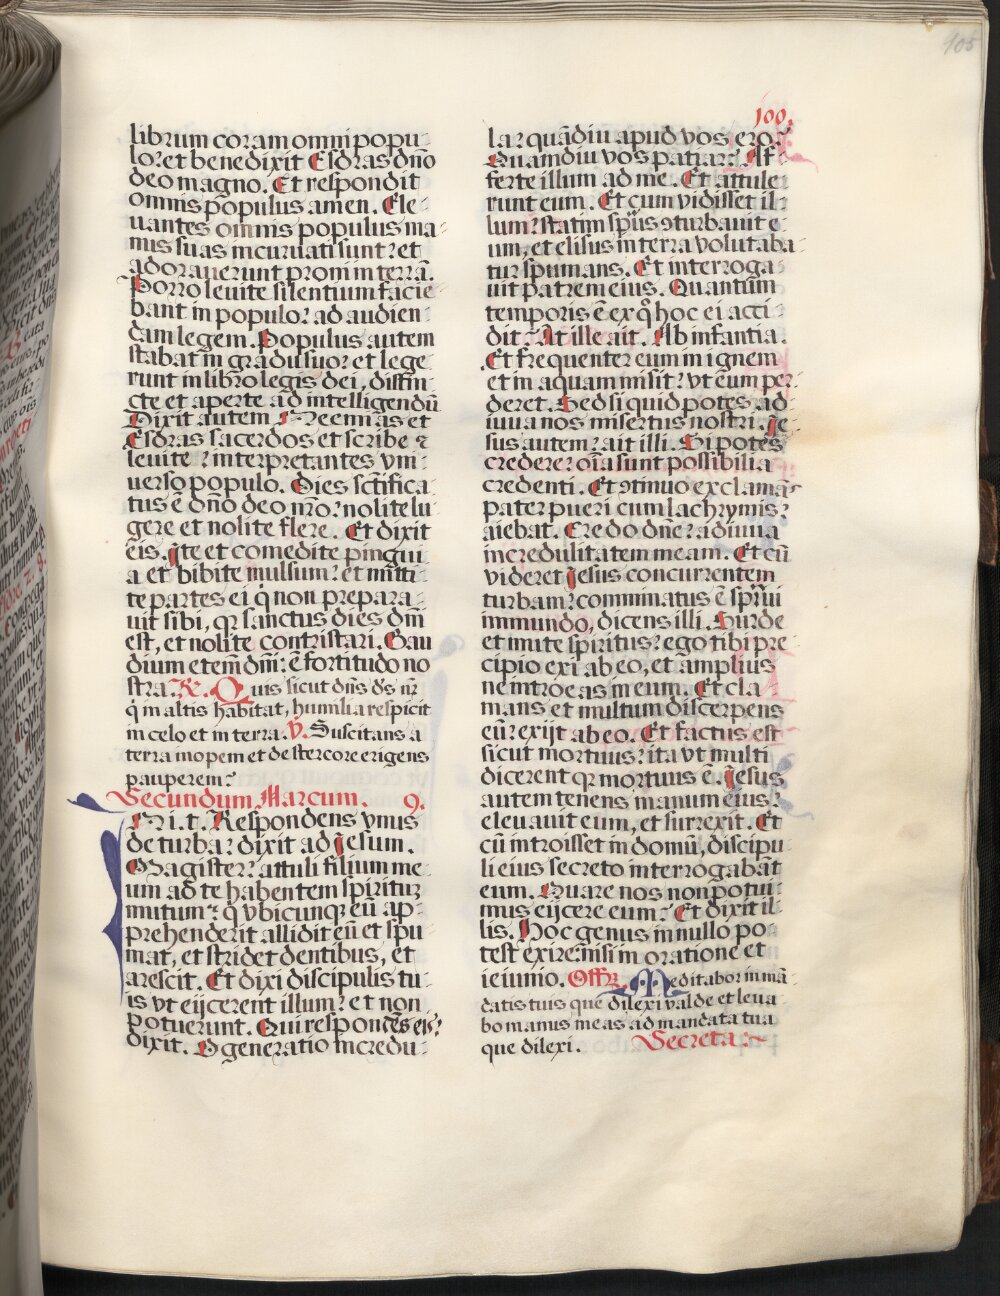 105
100.
librum coram omni popu-
lo: et benedixit Esdras dño
deo magno. Et respondit
omnis populus amen. Ele-
uantes omnis populus ma-
nus suas incuruati sunt: et
adorauerunt proni in terrã.
Porro leuite silentium facie-
bant in populo: ad audien-
dam legem. Populus autem
stabat in gradu suo: et lege-
runt in libro legis dei, distin-
cte et aperte ad intelligendũ
Dixit autem Neemias et
Esdras sacerdos et scribe ⁊
leuite: interpretantes vni-
uerso populo. Dies sctifica-
tus ẽ dño deo nro: nolite lu-
gere et nolite flere. Et dixit
eis. Ite et comedite pingui-
a et bibite mulsum: et mitti-
te partes ei q̃ non prepara-
uit sibi, qꝛ sanctus dies dñi
est, et nolite contristari. Gau
dium etem̃ dñi: ẽ fortitudo no
stra. R. Quis sicut dñs ds nr̃
q̃ in altis habitat, humilia respicit
in celo et in terra. V. Suscitans a
terra inopem et de stercore erigens
pauperem:
Secundum Marcum. 9.
IN i. t. Respondens vnus
de turba: dixit ad Jesum.
Magister: attuli filium me-
um ad te habentem spirituꝫ
mutum: q̃ vbicunqꝫ eũ ap-
prehenderit allidit eũ et spu
mat, et stridet dentibus, et
arescit. Et dixi discipulis tu-
is vt eijcerent illum: et non
potuerunt. Qui respondẽs eis:
dixit. O generatio incredu-
la: quãdiu apud vos ero?
Quamdiu vos patiar? Af-
ferte illum ad me. Et attule-
runt eum. Et cum vidisset il-
lum: statim sp̃us ↄturbauit e-
um, et elisus in terra voluta­ba-
tur spumans. Et interroga-
uit patrem eius. Quantum
temporis ẽ ex q̊ hoc ei acci-
dit: At ille ait. Ab infantia.
Et frequenter eum in ignem
et in aquam misit: vt eum per-
deret. Sed si quid potes: ad-
iuua nos misertus nostri. Je
sus autem: ait illi. Si potes
credere: oĩa sunt possibilia
credenti. Et ↄtinuo exclamãs
pater pueri cum lachrymis:
aiebat. Credo dñe: adiuua
incredulitatem meam. Et cũ
videret Jesus concurrentem
turbam: comminatus ẽ sp̃ui
immundo, dicens illi. Surde
et mute spiritus: ego tibi pre
cipio exi ab eo, et amplius
ne introeas in eum. Et cla-
mans et multum discerpens
eũ: exijt ab eo. Et factus est
sicut mortuus: ita vt multi
dicerent qꝛ mortuus ẽ. Jesus
autem tenens manum eius:
eleuauit eum, et surrexit. Et
cũ introisset in domũ, discipu-
li eius secreto interrogabãt
eum. Quare nos non potui-
mus eijcere eum: Et dixit il-
lis. Hoc genus in nullo po
test exire: nisi in oratione et
ieiunio. Offꝫ. Meditabor in mã-
datis tuis que dilexi valde et leua-
bo manus meas ad mandata tua
que dilexi. Secreta: